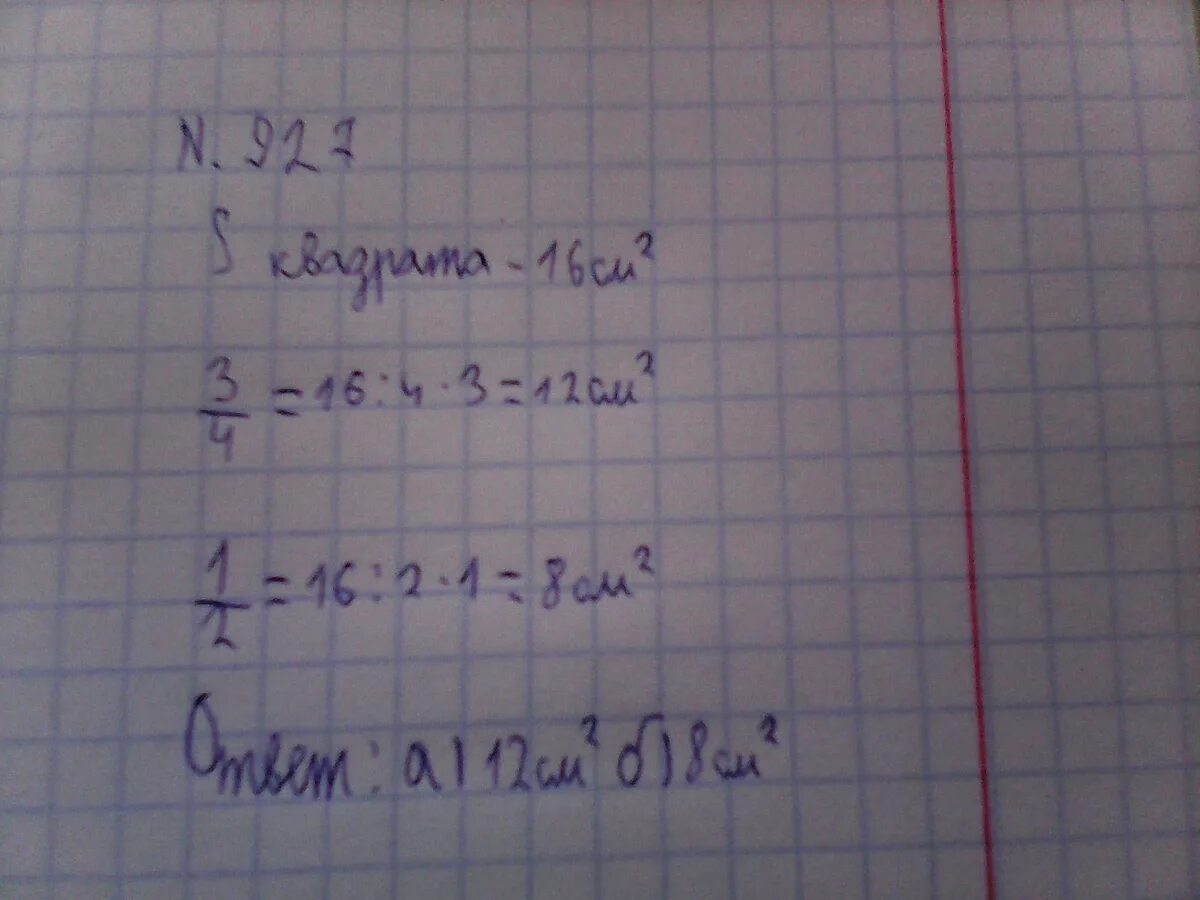 N. 927
S квадрата - 16см²
3/4 = 16 : 4 · 3 = 12см²
1/2 = 16 : 2 · 1 = 8см²
Ответ: а) 12см² б) 8см²